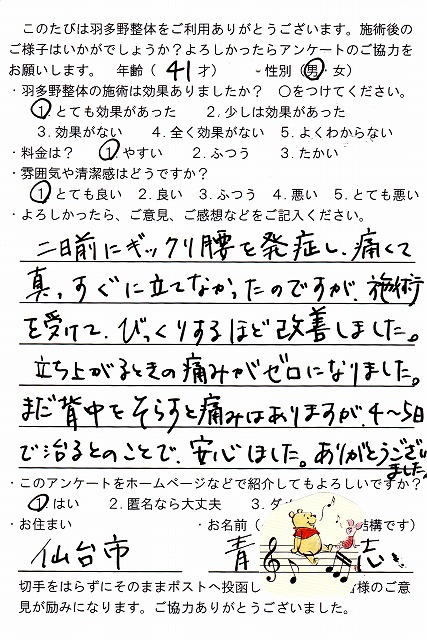 このたびは羽多野整体をご利用ありがとうございます。施術後の
ご様子はいかがでしょうか？よろしかったらアンケートのご協力を
お願いします。 年齢（ 41才） ・性別（男・女）
・羽多野整体の施術は効果ありましたか？ ○をつけてください。
1. とても効果があった 2. 少しは効果があった
3. 効果がない 4. 全く効果がない 5. よくわからない
・料金は？ 1. やすい 2. ふつう 3. たかい
・雰囲気や清潔感はどうですか？
1. とても良い 2. 良い 3. ふつう 4. 悪い 5. とても悪い
・よろしかったら、ご意見、ご感想などをご記入ください。
二日前にギックリ腰を発症し、痛くて
真っすぐに立てなかったのですが、施術
を受けて、びっくりするほど改善しました。
立ち上がるときの痛みがゼロになりました。
まだ背中をそらすと痛みはありますが、4〜5日
で治るとのことで、安心しました。ありがとうござい
ました。
・このアンケートをホームページなどで紹介してもよろしいですか？
1. はい 2. 匿名なら大丈夫 3. ダ
・お住まい ・お名前（ 結構です）
仙台市 青 志
切手をはらずにそのままポストへ投函し 様のご意
見が励みになります。ご協力ありがとうございました。